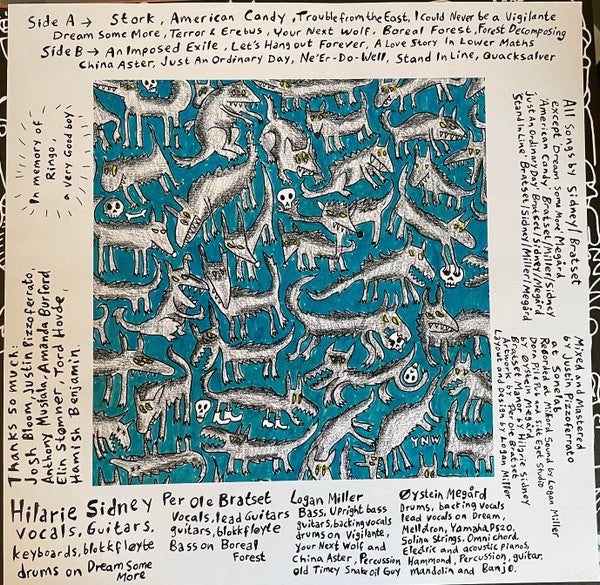 Side A → Stork, American Candy, Trouble from the East, I Could Never be a Vigilante
Dream Some More, Terror & Erebus, Your Next Wolf, Boreal Forest, Forest Decomposing
Side B → An Imposed Exile, Let's Hang out Forever, A Love Story In Lower Maths
China Aster, Just An Ordinary Day, Ne'Er-Do-Well, Stand In Line, Quacksalver
In memory of
Ringo,
a very Good boy
All songs by Sidney/Bratset
except Dream Some More Megård
American Candy Bratset/Miller/Sidney
Just An Ordinary Day Bratset/Sidney/Megård
Stand in Line Bratset/Sidney/Miller/Megård
Mixed and Mastered
by Justin Pizzoferrato
at Sonelab
Recorded at Milford Sound by Logan Miller
Dora Pile Pub and Silk Eset Studio
by Øystein Megård
Bratset Manor by Hilarie Sidney
Artwork by Per Ole Bratset
Layout and Design by Logan Miller
Thanks so much:
Josh Bloom, Justin Pizzoferrato,
Anthony Musiala, Amanda Burford
Elin Stamner, Tord Hovde,
Hamish Benjamin
YNW
Hilarie Sidney
vocals, Guitars,
keyboards, blokkfløyte
drums on Dream Some
More
Per Ole Bratset
Vocals, lead Guitars
guitars, blokkfløyte
Bass on Boreal
Forest
Logan Miller
Bass, Upright bass
guitars, backing vocals
drums on Vigilante,
Your Next Wolf and
China Aster, Percussion
Old Timey Snake oil Guy
Øystein Megård
Drums, backing vocals
lead vocals on Dream,
Mellotron, Yamaha PS20,
Solina Strings, Omnichord,
Electric and acoustic pianos,
Hammond, Percussion, guitar,
mandolin and Banjo.